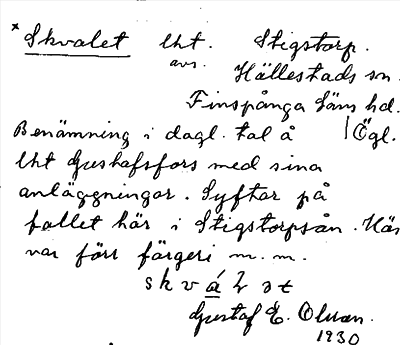 * Skvalet lht. Stigstorp.
avs. Hällestads sn.
Finspånga läns hd.
Benämning i dagl. tal å | Ögl.
lht Gustafsfors med sina
anläggningar. Syftar på
fallet här i Stigstorpsån. Här
var förr färgeri m. m.
skvál ət
Gustaf E. Olsson.
1930